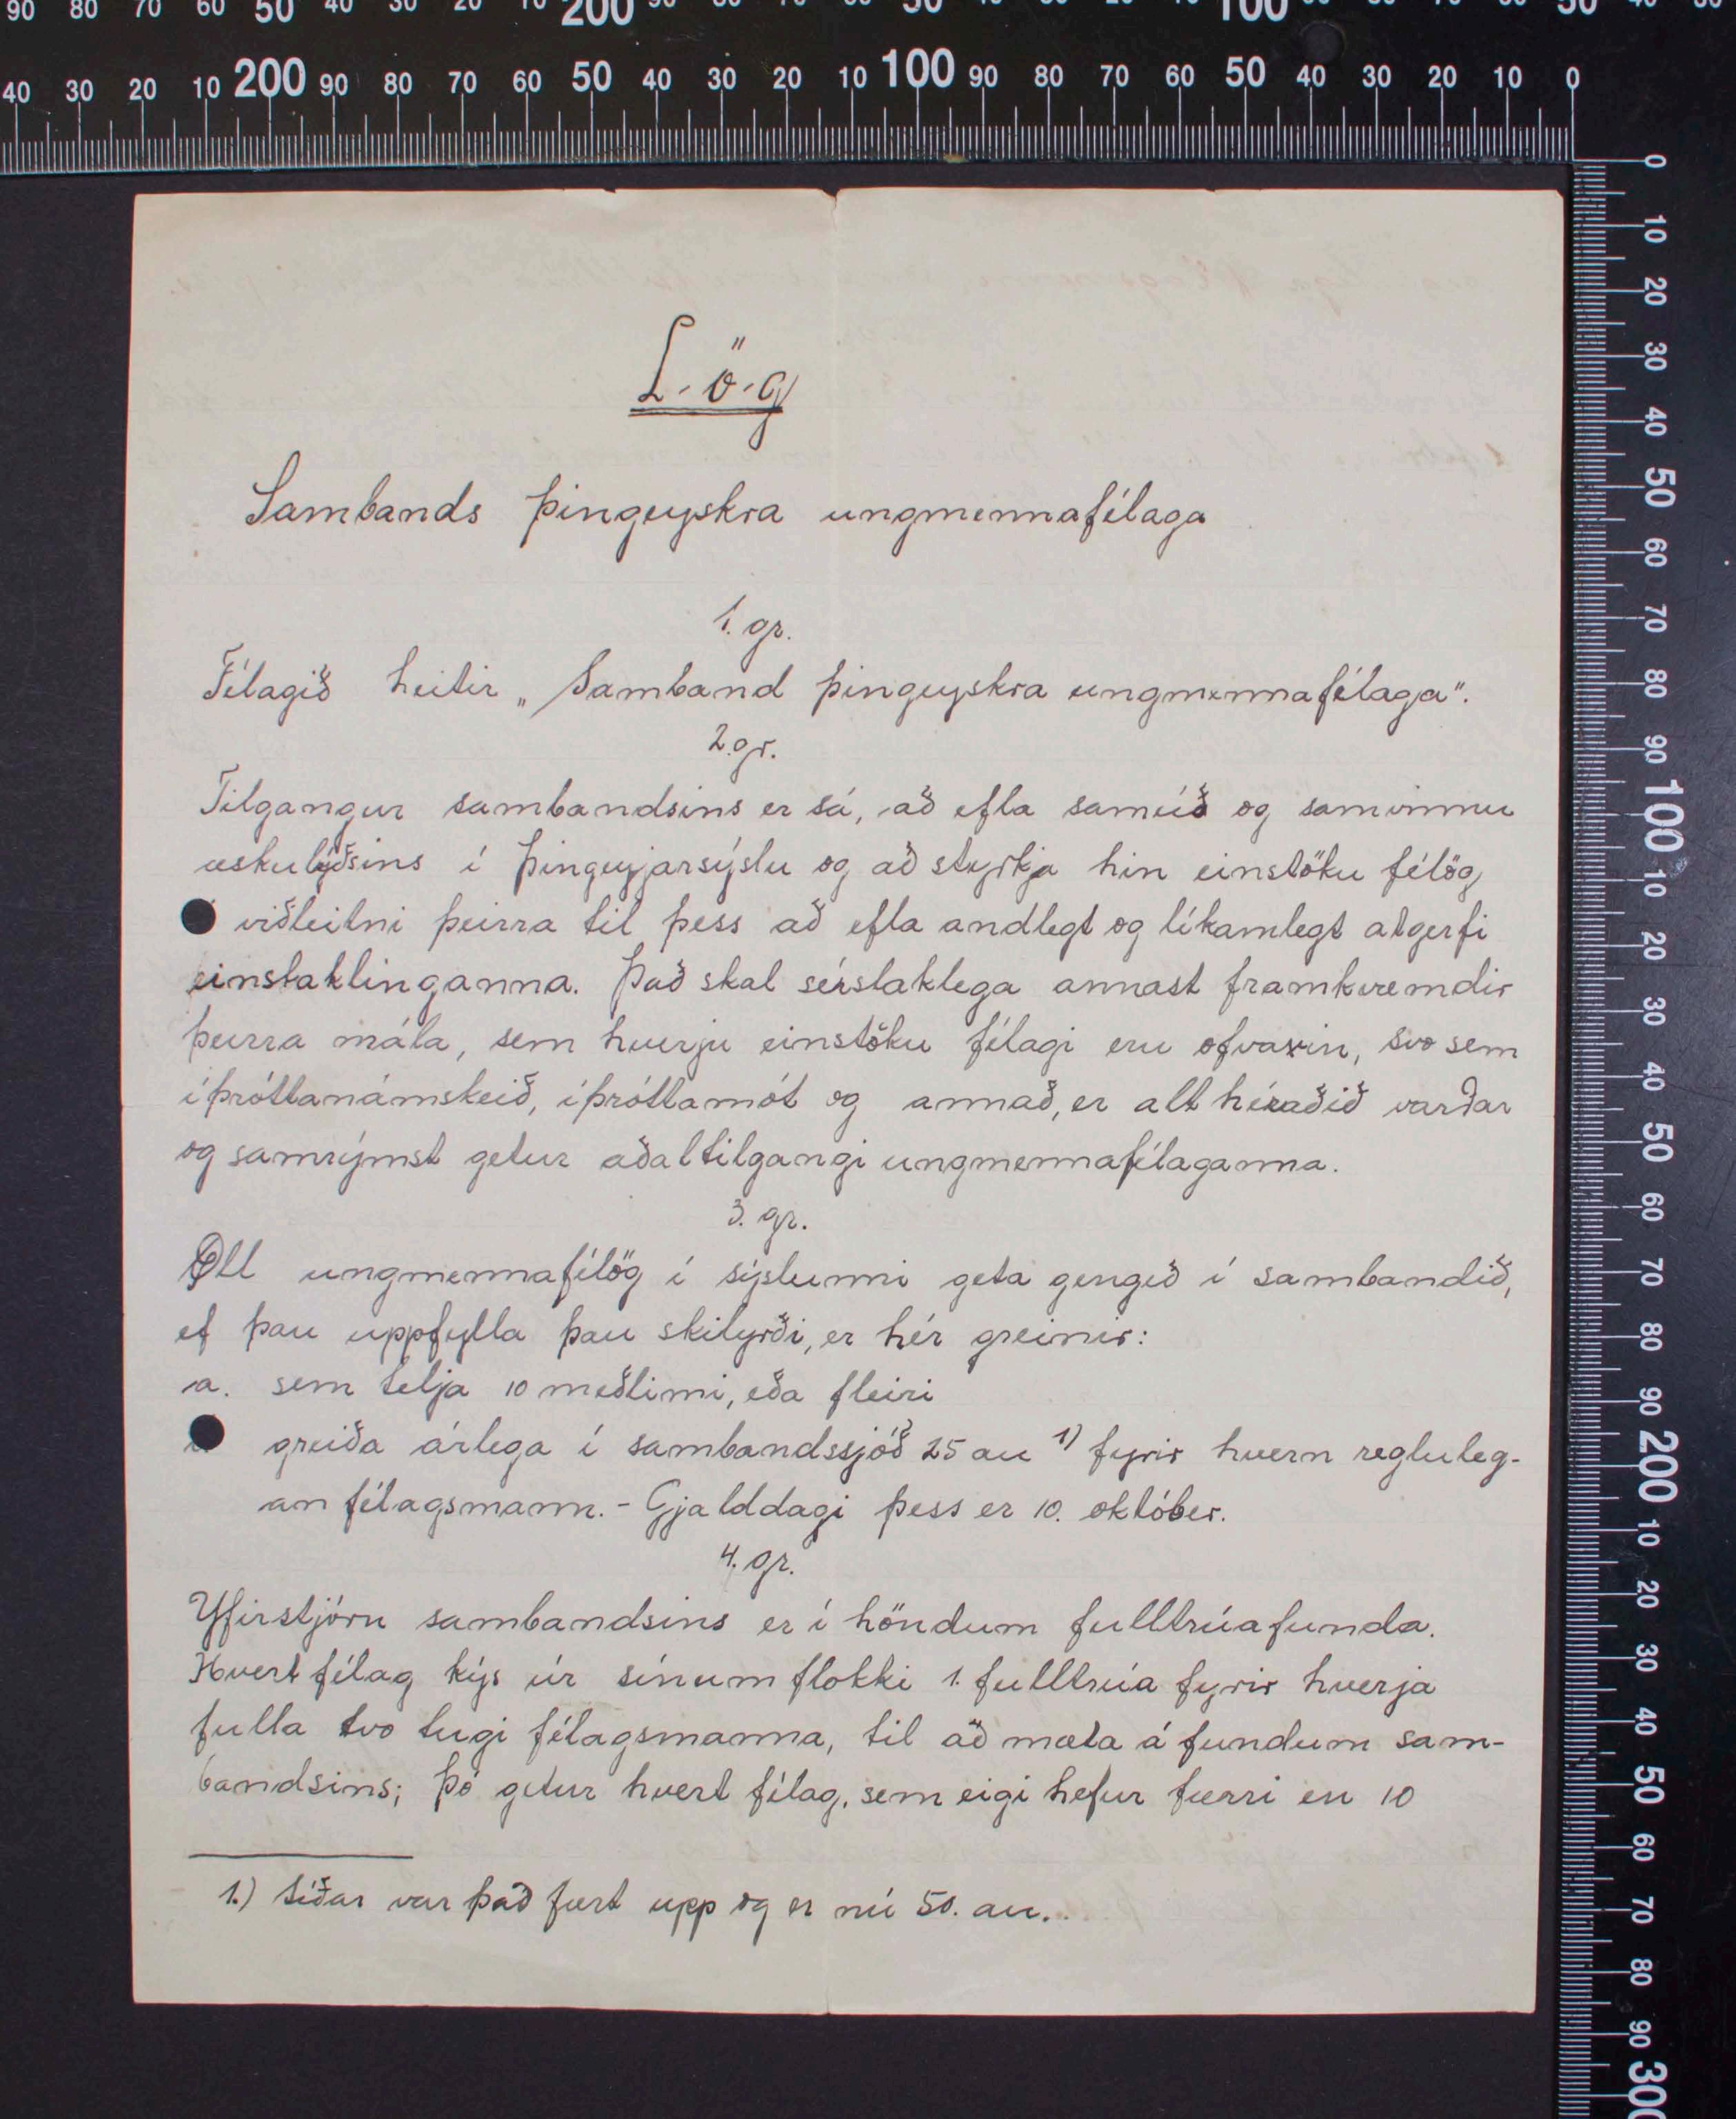 90 80 70 60 50 40 30 20 10 200 90 80 70 60 50 40 30 20 10 100 90 80 70 60 50 40 30
40 30 20 10 200 90 80 70 60 50 40 30 20 10 100 90 80 70 60 50 40 30 20 10 0
L-ö-g
Sambands þingeyskra ungmennafélaga
1. gr.
Félagið heitir „Samband þingeyskra ungmennafélaga".
2. gr.
Tilgangur sambandsins er sá, að efla samúð og samvinnu
æskulýðsins í Þingeyjarsýslu og að styrkja hin einstöku félög
viðleitni þeirra til þess að efla andlegt og líkamlegt atgerfi
einstaklinganna. Það skal sérstaklega annast framkvæmdir
þeirra mála, sem hverju einstöku félagi eru ofvaxin, svo sem
íþróttanámskeið, íþróttamót og annað, er alt héraðið varðar
og samrýmst getur aðaltilgangi ungmennafélaganna.
3. gr.
Öll ungmennafélög í sýslunni geta gengið í sambandið,
ef þau uppfylla þau skilyrði, er hér greinir:
a. sem telja 10 meðlimi, eða fleiri
greiða árlega í sambandssjóð 25 au 1) fyrir hvern regluleg-
an félagsmann. - Gjalddagi þess er 10. október.
4. gr.
Yfirstjórn sambandsins er í höndum fulltrúafunda.
Hvert félag kýs úr sínum flokki 1. fulltrúa fyrir hverja
fulla tvo tugi félagsmanna, til að mæta á fundum sam-
bandsins; Þó getur hvert félag, sem eigi hefur færri en 10
1.) Síðar var það fært upp og er nú 50. au.
0 10 20 30 40 50 60 70 80 90 100 10 20 30 40 50 60 70 80 90 200 10 20 30 40 50 60 70 80 90 300